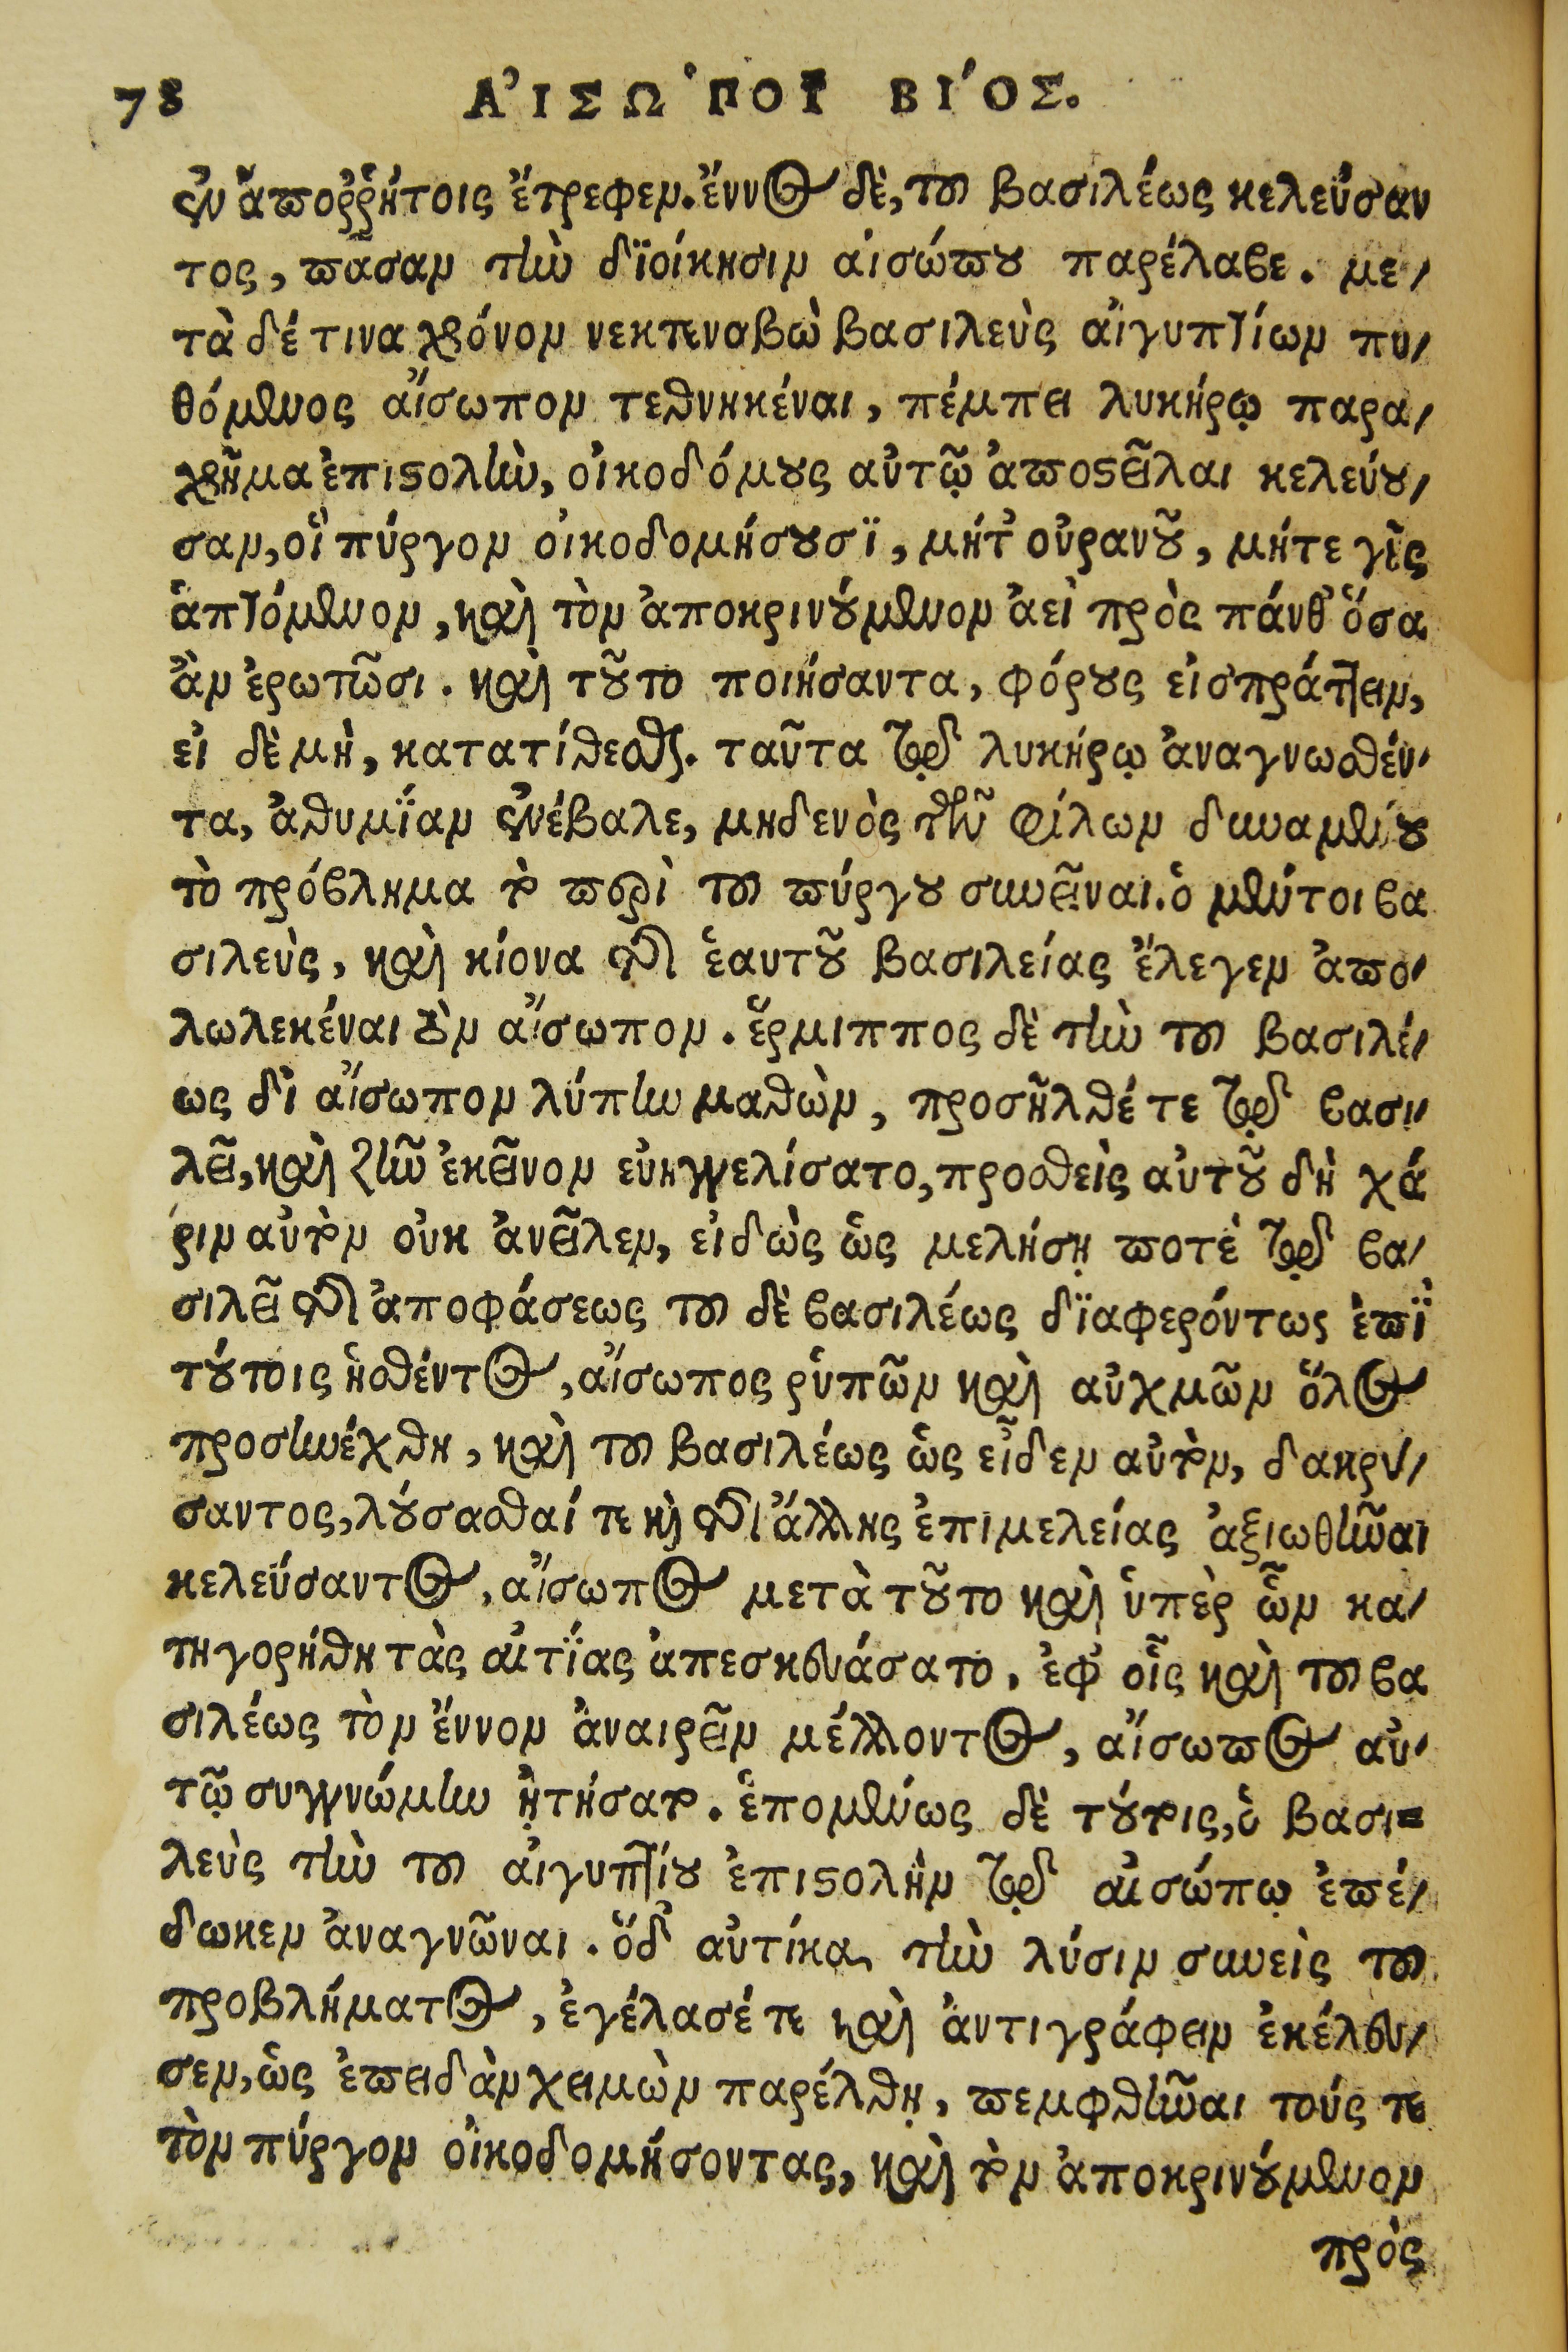 78 ΑἸΣΩ´ΠΟΥ ΒΙ´ΟΣ.
ἐν ἀποῤῥήτοις ἔτρεφεν. ἔννος δὲ, τοῦ βασιλέως κελεύσαν
τος, πᾶσαν τὴν διοίκησιν αἰσώπου παρέλαβε. με-
τὰ δέ τινα χρόνον νεκτεναβὼ βασιλεὺς αἰγυπτίων πυ-
θόμενος αἴσωπον τεθνηκέναι, πέμπει λυκήρῳ παρα-
χρῆμα ἐπιστολὴν, οἰκοδόμους αὐτῷ ἀποστεῖλαι κελεύου-
σαν, οἳ πύργον οἰκοδομήσουσι, μήτ' οὐρανοῦ, μήτε γῆς
ἁπτόμενον, καὶ τὸν ἀποκρινούμενον ἀεὶ πρὸς πάνθ' ὅσα
ἂν ἐρωτῶσι. καὶ τοῦτο ποιήσαντα, φόρους εἰσπράττειν,
εἰ δὲ μὴ, κατατίθεσθαι. ταῦτα τῷ λυκήρῳ ἀναγνωσθέν-
τα, ἀθυμίαν ἐνέβαλε, μηδενὸς τῶν φίλων δυναμένου
τὸ πρόβλημα τὸ περὶ τοῦ πύργου συνεῖναι. ὁ μέντοι βα
σιλεὺς, καὶ κίονα τῆς ἑαυτοῦ βασιλείας ἔλεγεν ἀπο-
λωλεκέναι τὸν αἴσωπον. ἕρμιππος δὲ τὴν τοῦ βασιλέ-
ως δι' αἴσωπον λύπην μαθὼν, προσῆλθέ τε τῷ βασι-
λεῖ, καὶ ζῆν ἐκεῖνον εὐηγγελίσατο, προσθεὶς αὐτοῦ δὴ χά
ριν αὐτὸν οὐκ ἀνεῖλεν, εἰδὼς ὡς μελήσῃ ποτὲ τῷ βα-
σιλεῖ τῆς ἀποφάσεως τοῦ δὲ βασιλέως διαφερόντως ἐπὶ
τούτοις ἡσθέντος, αἴσωπος ῥυπῶν καὶ αὐχμῶν ὅλος
προσηνέχθη, καὶ τοῦ βασιλέως ὡς εἶδεν αὐτὸν, δακρύ-
σαντος, λούσασθαί τε καὶ τῆς ἄλλης ἐπιμελείας ἀξιωθῆναι
κελεύσαντος, αἴσωπος μετὰ τοῦτο καὶ ὑπὲρ ὧν κα-
τηγορήθη τὰς αἰτίας ἀπεσκευάσατο, ἐφ' οἷς καὶ τοῦ βα
σιλέως τὸν ἔννον ἀναιρεῖν μέλλοντος, αἴσωπος αὐ-
τῷ συγγνώμην ᾐτήσατο. ἑπομένως δὲ τούτοις, ὁ βασι=
λεὺς τὴν τοῦ αἰγυπτίου ἐπιστολὴν τῷ αἰσώπῳ ἐπέ-
δωκεν ἀναγνῶναι. ὅδ' αὐτίκα τὴν λύσιν συνεὶς τοῦ
προβλήματος, ἐγέλασέ τε καὶ ἀντιγράφειν ἐκέλευ-
σεν, ὡς ἐπειδὰν χειμὼν παρέλθῃ, πεμφθῆναι τούς τε
τὸν πύργον οἰκοδομήσοντας, καὶ τὸν ἀποκρινούμενον
πρὸς